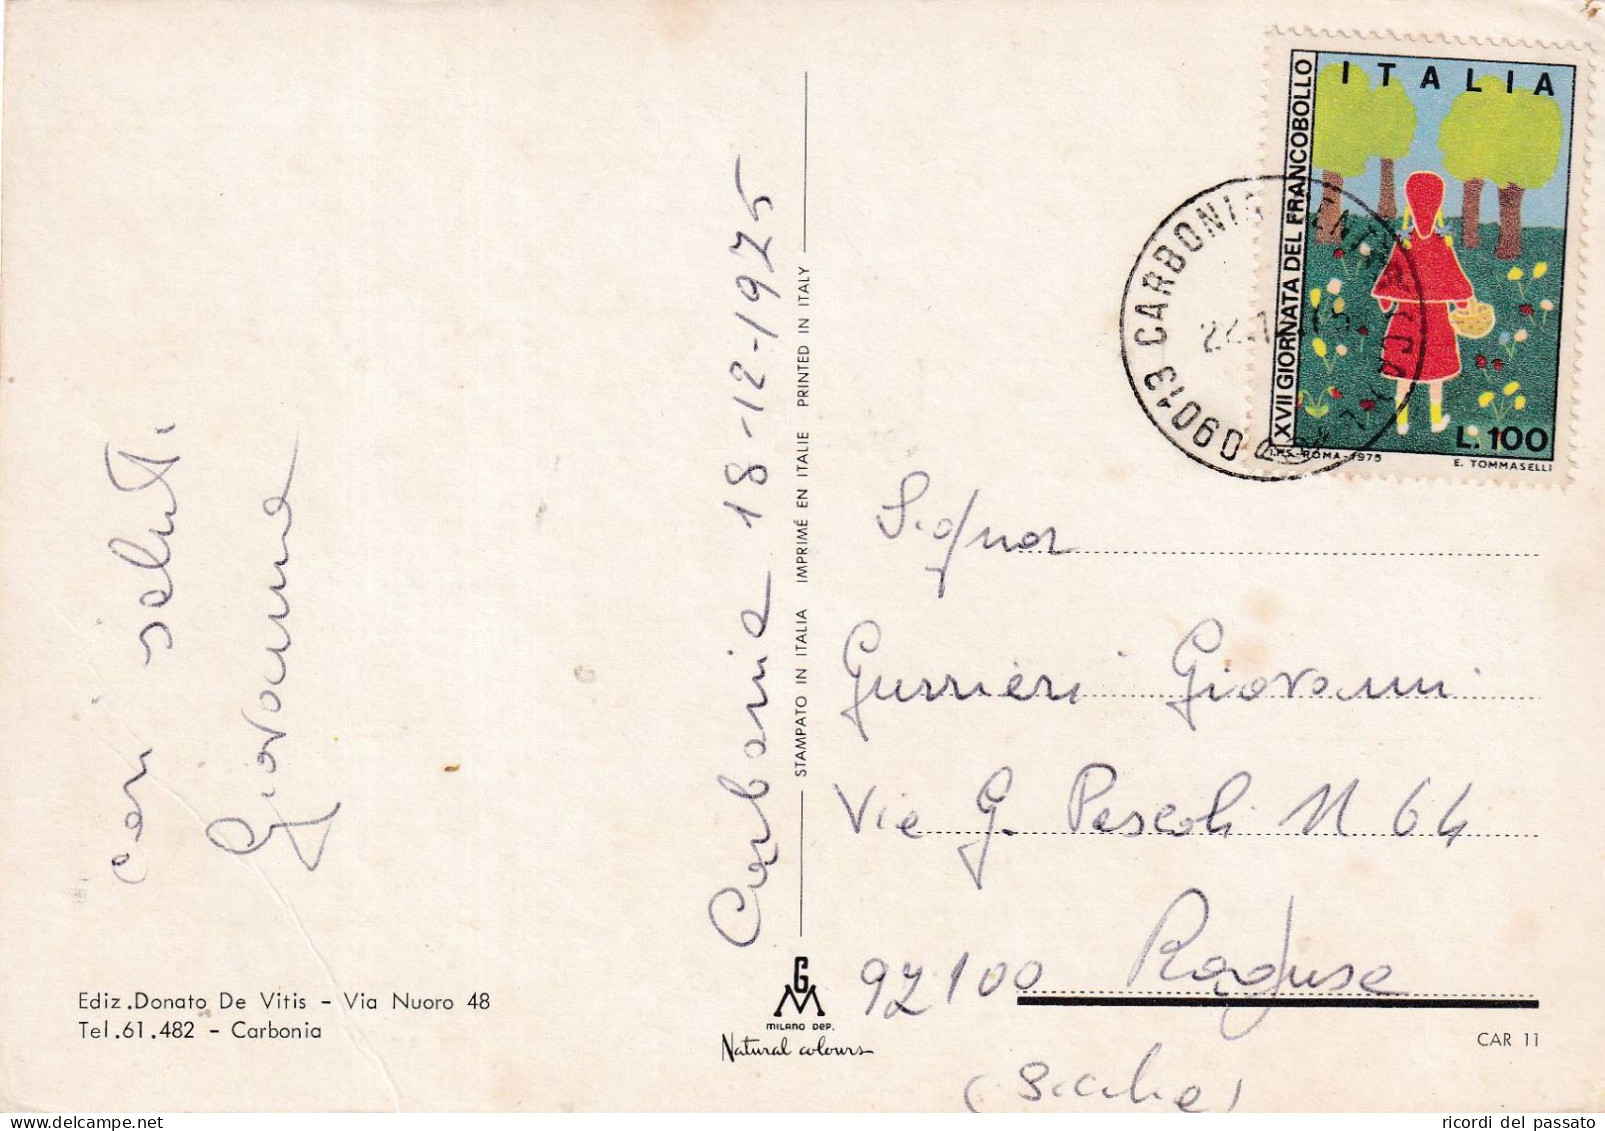 con saluti
Giovanna
Ediz.Donato De Vitis - Via Nuoro 48
Tel.61.482 - Carbonia
Carbonia 18-12-1975
STAMPATO IN ITALIA IMPRIMÉ EN ITALIE PRINTED IN ITALY
GM
MILANO DEP.
Natural colours
ITALIA
XVII GIORNATA DEL FRANCOBOLLO
L.100
I.P.S.-ROMA-1975
E. TOMMASELLI
09013 CARBONIA
Signor
Gurrieri Giovanni
Via G. Pascoli N 64
97100 Ragusa
(Sicilia)
CAR 11
ricordi del passato